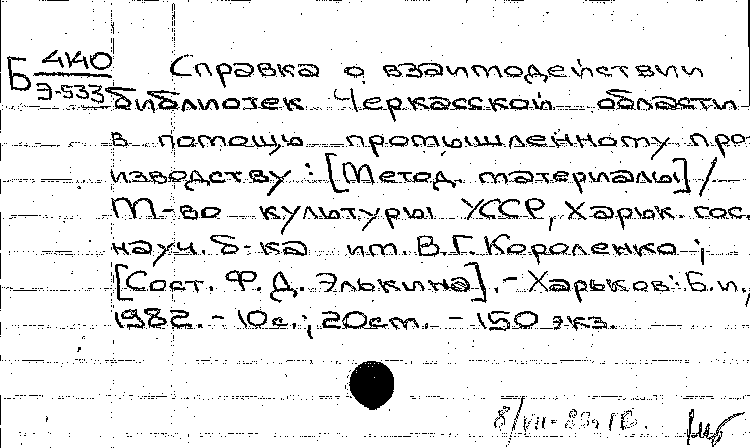 Б 4140/Э-533 Справка о взаимодействии
библиотек Черкасской области
в помощь промышленному про-
изводству : [Метод. материалы] /
М-во культуры УССР, Харьк. гос.
науч. б-ка им. В.Г. Короленко ;
[Сост. Ф. Д. Элькина]. - Харьков: Б.и.,
1982. - 10с.; 20см. - 150 экз.
8/VII-83г.